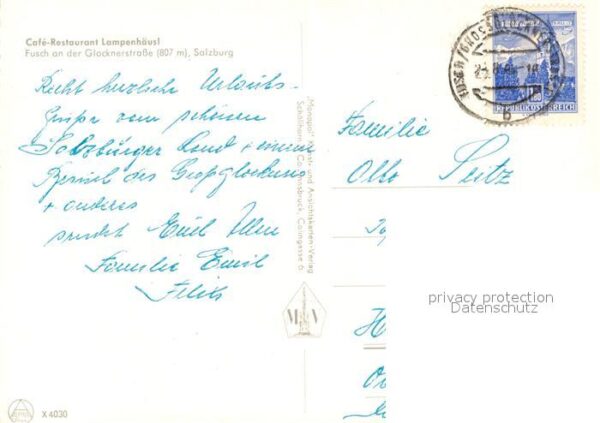 Café-Restaurant Lampenhäusl
Fusch an der Glocknerstraße (807 m), Salzburg
Recht herzliche Urlaubs-
grüße vom schönen
Salzburger Land + einem
Besuch des Großglockners
+ anderes
sendet Euch Allen
Familie Emil
X 4030
"Monopol" Kunst- und Ansichtskarten-Verlag
Schöllhorn & Co., Innsbruck, Colingasse 6
M V
REPUBLIK ÖSTERREICH
b
Familie
Otto Seitz
privacy protection
Datenschutz
H